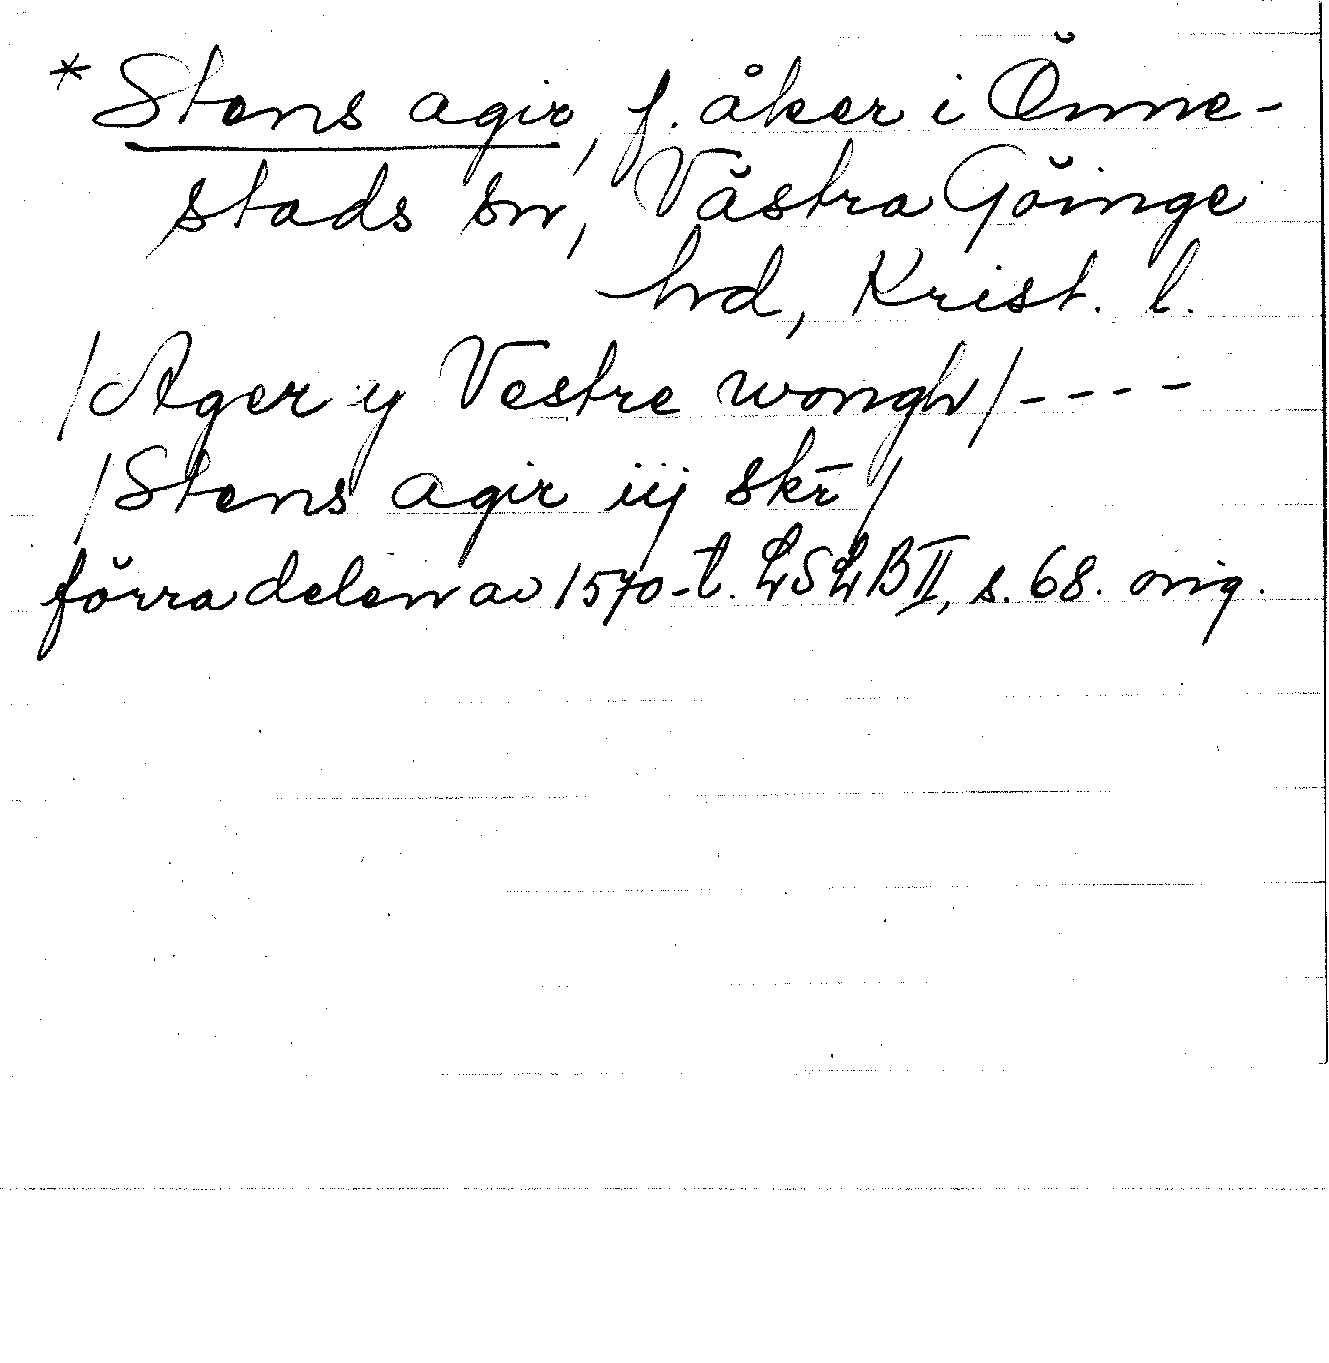 *Stens agir, f. åker i Önne-
stads sn, Västra Göinge
hd, Krist. l.
/Ager y Vestre wongh/----
/Stens agir iij skr̄/
förra delen av 1570-t. LSLB II, s. 68. orig.